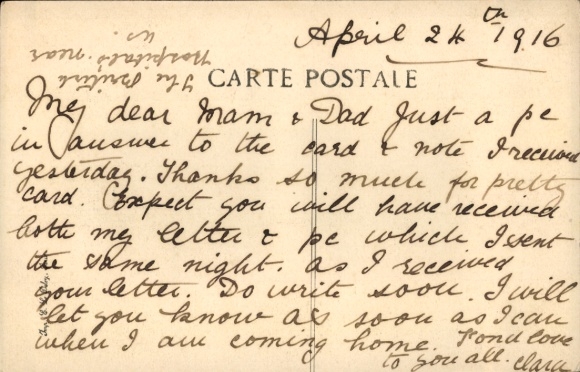 April 24th 1916
The British
Hospitals near
us.
CARTE POSTALE
My dear Mam & Dad Just a pc
in answer to the card & note I received
yesterday. Thanks so much for pretty
card. Expect you will have received
both my letter & pc which I sent
the same night. as I received
your letter. Do write soon. I will
let you know as soon as I can
when I am coming home. Fond love
to you all. Clara